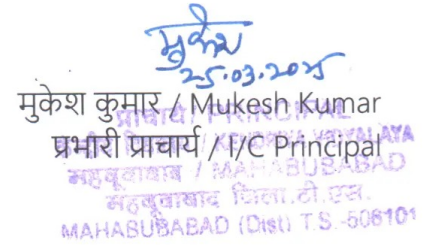 मुकेश
25.03.2025
मुकेश कुमार / Mukesh Kumar
प्राचार्य / PRINCIPAL
प्रभारी प्राचार्य / I/C Principal
VIDYALAYA
महबूबाबाद / MAHABUBABAD
महबूबाबाद जिला.टी.एस.
MAHABUBABAD (Dist) T.S.-506101